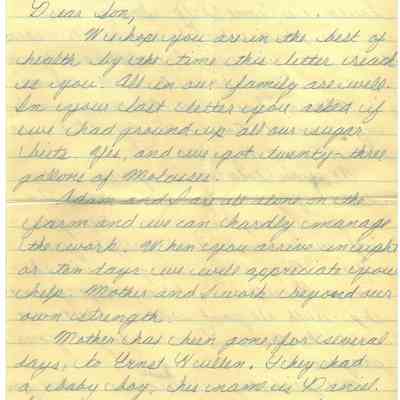 Dear Son,
We hope you are in the best of
health by the time this letter reach
es you. All in our family are well.
In your last letter you asked if
we had ground up all our sugar
beets Yes, and we got twenty-three
gallons of Molasses.
Adam and I are all alone on the
farm and we can hardly manage
the work. When you arrive in eight
or ten days we will appreciate your
help. Mother and I work beyond our
own strength.
Mother has been gone, for several
days, to Ernst They had
a baby boy, his name is Daniel.